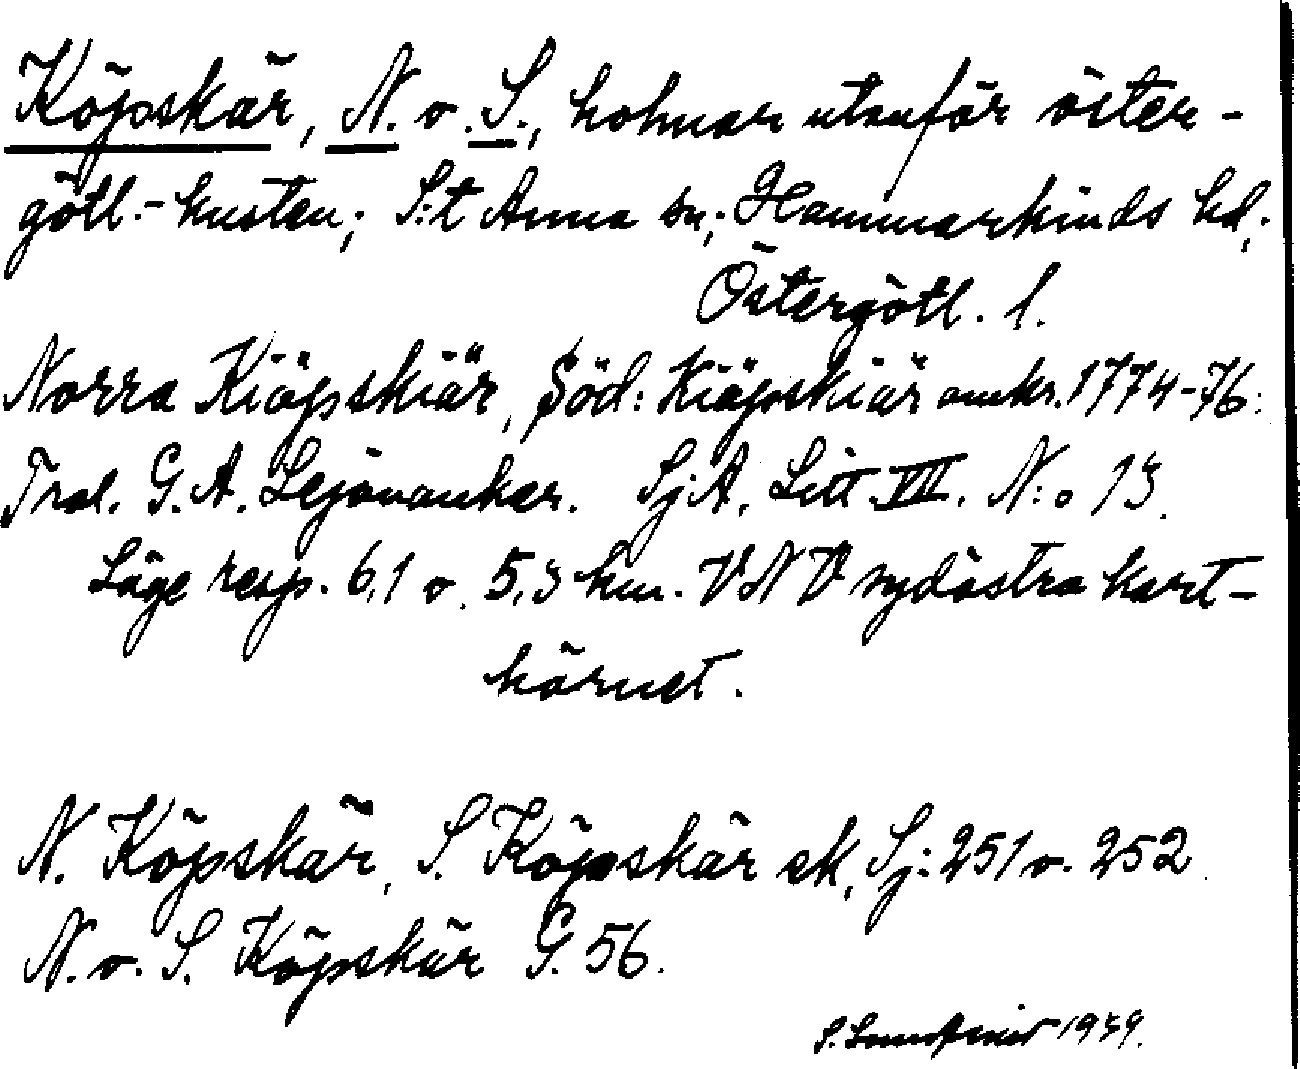 Köpskär, N. o. S., holmar utanför öster-
götl.-kusten; S:t Anna sn; Hammarkinds hd;
Östergötl. l.
Norra Kiöpskiär, Söd: Kiöpskiär omkr. 1774-76:
Trol. G. A. Lejonancker. Sj.A. Litt. VII. N:o 13.
Läge resp. 6,1 o. 5,3 km. VNV sydöstra kart-
hörnet.
N. Köpskär, S. Köpskär ek, Sj: 251 o. 252.
N. o. S. Köpskär G. 56.
S. 1939.